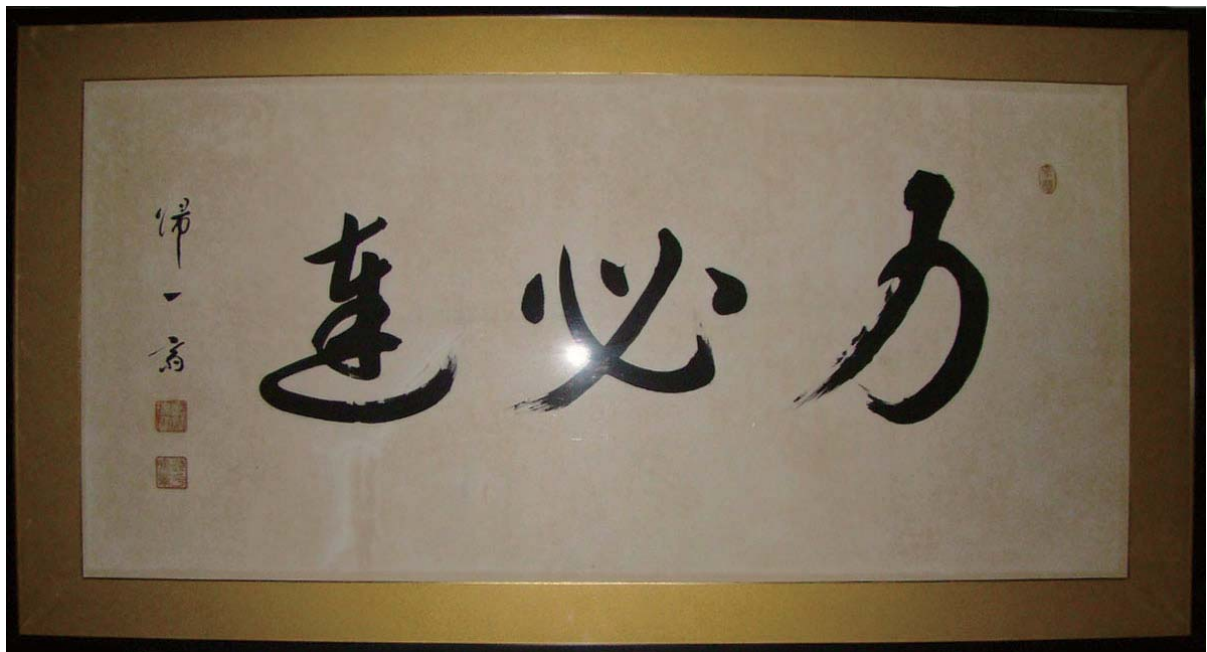 力必達
帰一斎